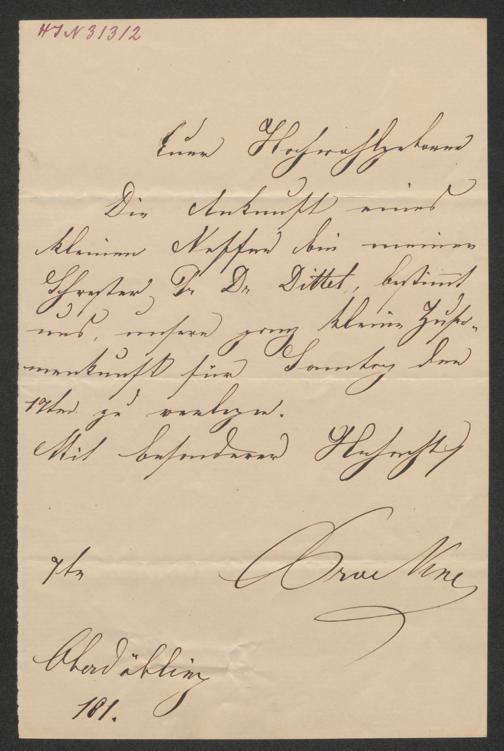 HIN 31312
Euer Hochwohlgeboren
Die Ankunft eines
kleinen Neffen bei meiner
Schwester, Fr. Dr. Dittel, bestimmt
uns, unsere ganz kleine Zusam-
menkunft für Samstag den
17ten zu verlegen.
Mit besonderer Hochacht
7te
Oberdöbling
181.